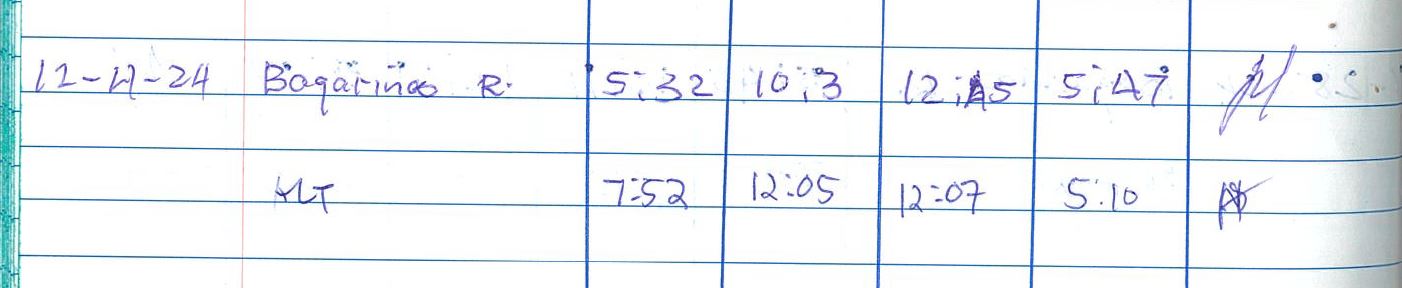 12-4-24 Bagarinao R. 5:32 10:3 12:45 5:47
MLT 7:52 12:05 12:07 5:10